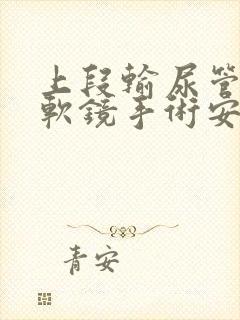 上段輸尿管
軟鏡手術安
青安